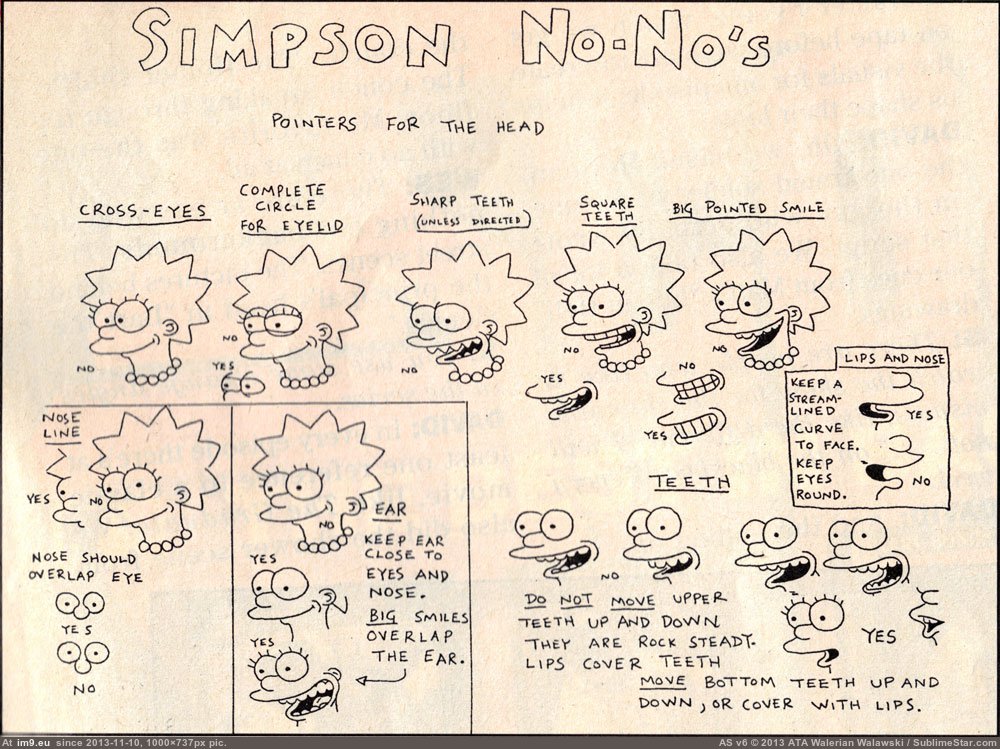 SIMPSON NO-NO'S
POINTERS FOR THE HEAD
CROSS-EYES
NO
COMPLETE
CIRCLE
FOR EYELID
NO
YES
SHARP TEETH
(UNLESS DIRECTED)
NO
SQUARE
TEETH
NO
YES
NO
YES
BIG POINTED SMILE
NO
LIPS AND NOSE
KEEP A
STREAM-
LINED
CURVE
TO FACE.
KEEP
EYES
ROUND.
YES
NO
NOSE
LINE
YES
NO
NOSE SHOULD
OVERLAP EYE
YES
NO
NO
EAR
KEEP EAR
CLOSE TO
EYES AND
NOSE.
BIG SMILES
OVERLAP
THE EAR.
YES
YES
TEETH
NO
DO NOT MOVE UPPER
TEETH UP AND DOWN
THEY ARE ROCK STEADY.
LIPS COVER TEETH
YES
MOVE BOTTOM TEETH UP AND
DOWN, OR COVER WITH LIPS.
At im9.eu since 2013-11-10, 1000×737px pic.
AS v6 © 2013 ATA Walerian Walawski / SublimeStar.com